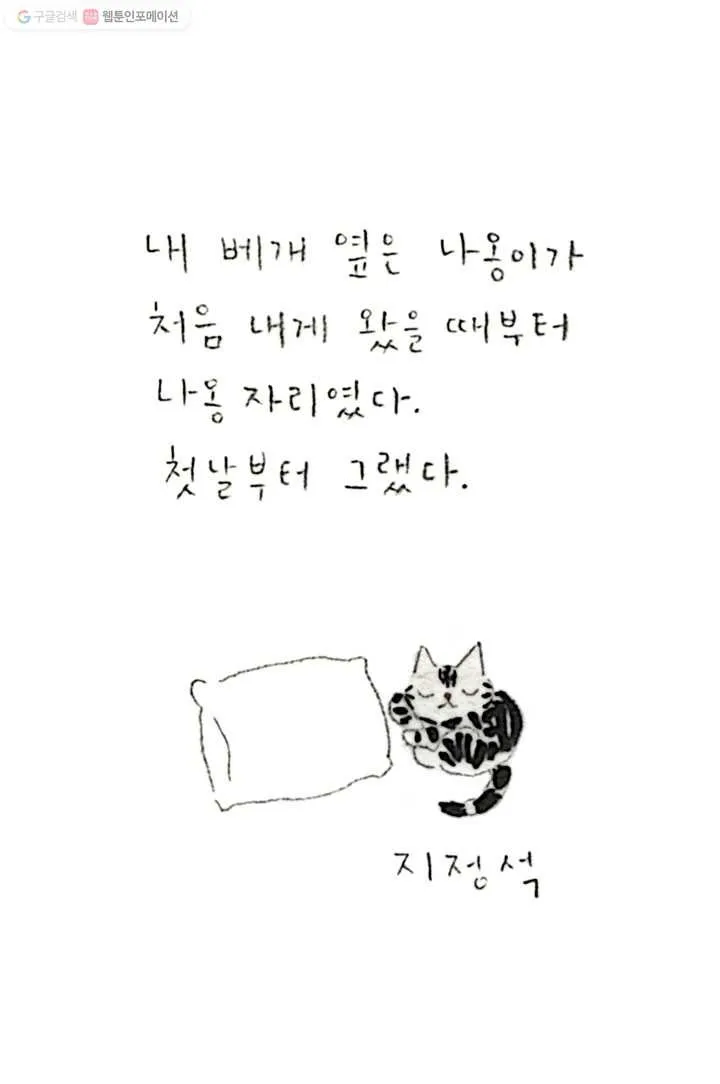 구글검색 웹툰인포메이션
내 베개 옆은 나옹이가
처음 내게 왔을 때부터
나옹 자리였다.
첫날부터 그랬다.
지정석